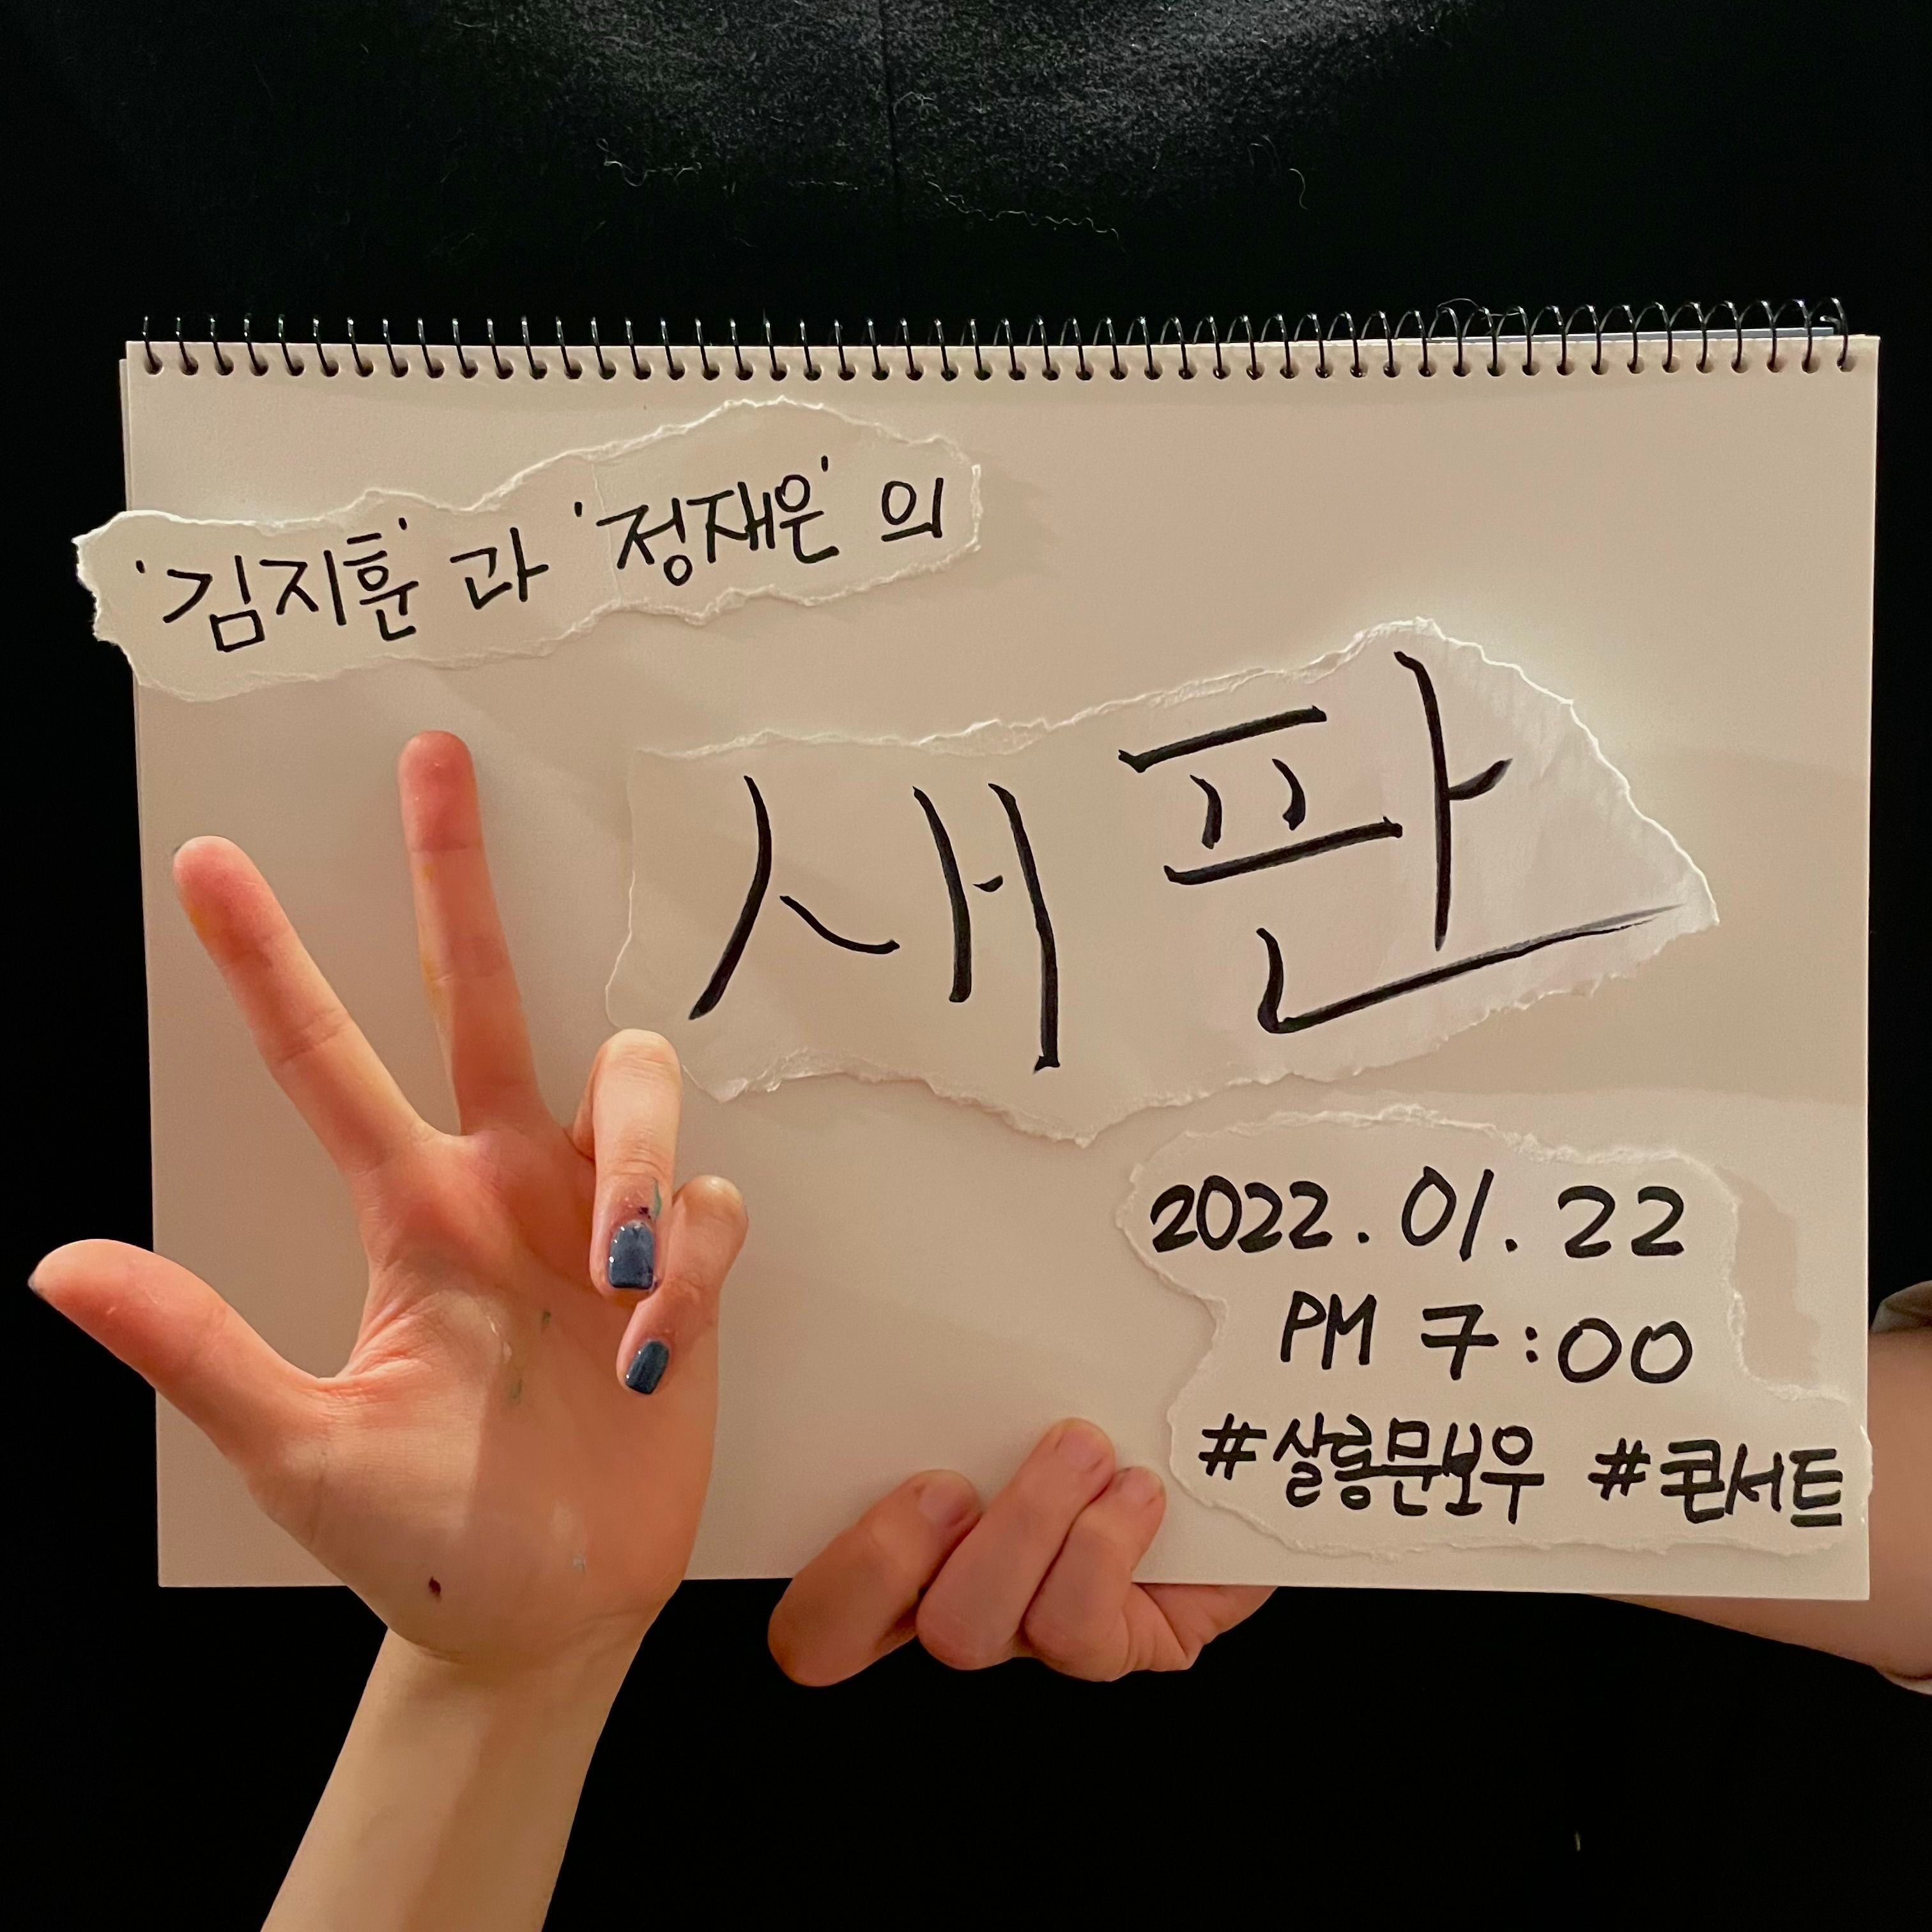 '김지훈'과 '정재은'의
새판
2022. 01. 22
PM 7:00
#살롱문보우 #콘서트